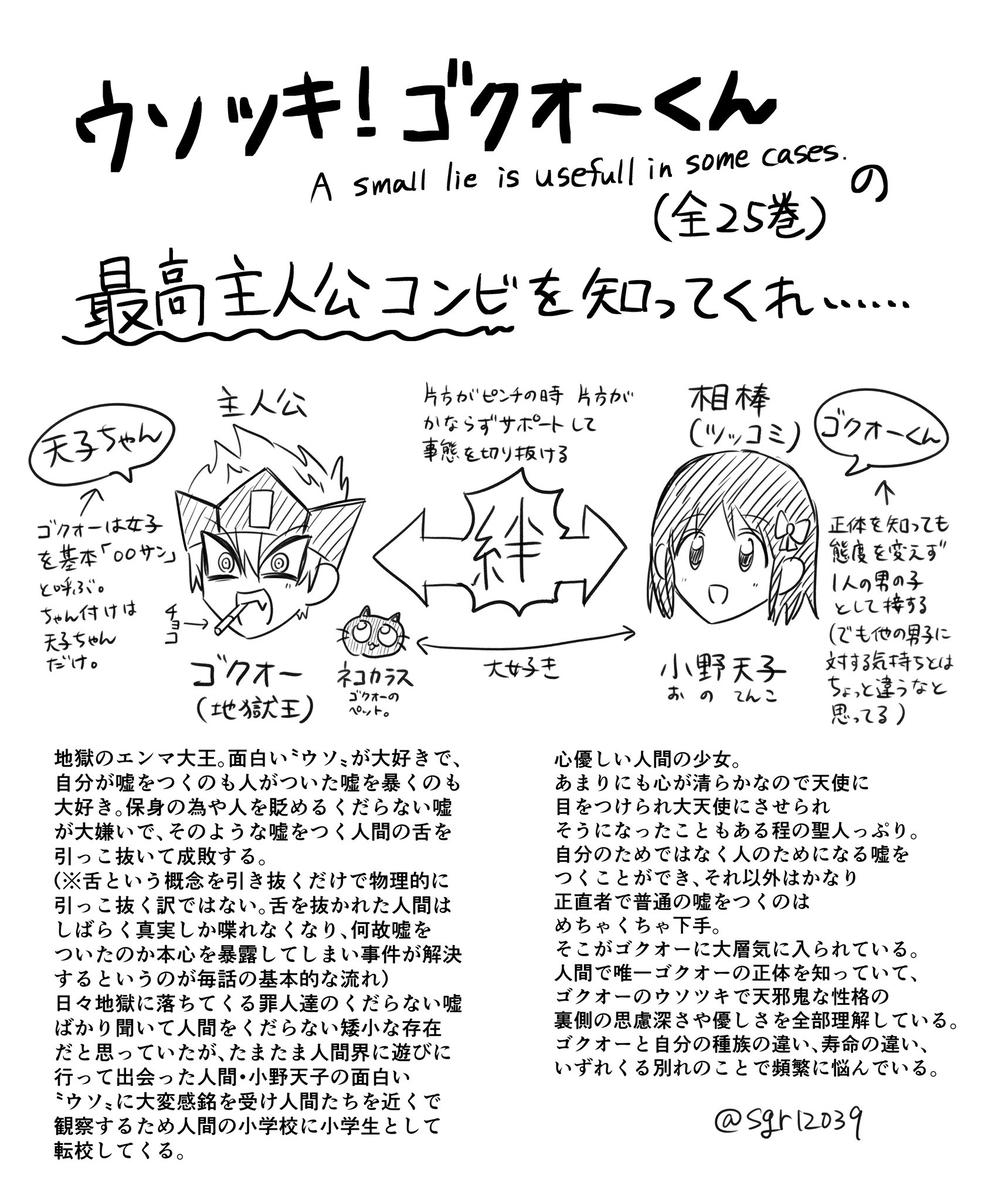 ウソツキ!ゴクオーくん
A small lie is usefull in some cases.
の
(全25巻)
最高主人公コンビを知ってくれ……
天子ちゃん
ゴクオーは女子
を基本「〇〇サン」
と呼ぶ。
ちゃん付けは
天子ちゃん
だけ。
主人公
チョコ
ゴクオー
(地獄王)
片方がピンチの時 片方が
かならずサポートして
事態を切り抜ける
絆
ネコカラス
ゴクオーの
ペット。
大好き
相棒
(ツッコミ)
小野天子
おの てんこ
ゴクオーくん
正体を知っても
態度を変えず
1人の男の子
として接する
(でも他の男子に
対する気持ちとは
ちょっと違うなと
思ってる)
地獄のエンマ大王。面白い〝ウソ〟が大好きで、
自分が嘘をつくのも人がついた嘘を暴くのも
大好き。保身の為や人を貶めるくだらない嘘
が大嫌いで、そのような嘘をつく人間の舌を
引っこ抜いて成敗する。
(※舌という概念を引き抜くだけで物理的に
引っこ抜く訳ではない。舌を抜かれた人間は
しばらく真実しか喋れなくなり、何故嘘を
ついたのか本心を暴露してしまい事件が解決
するというのが毎話の基本的な流れ)
日々地獄に落ちてくる罪人達のくだらない嘘
ばかり聞いて人間をくだらない矮小な存在
だと思っていたが、たまたま人間界に遊びに
行って出会った人間・小野天子の面白い
〝ウソ〟に大変感銘を受け人間たちを近くで
観察するため人間の小学校に小学生として
転校してくる。
心優しい人間の少女。
あまりにも心が清らかなので天使に
目をつけられ大天使にさせられ
そうになったこともある程の聖人っぷり。
自分のためではなく人のためになる嘘を
つくことができ、それ以外はかなり
正直者で普通の嘘をつくのは
めちゃくちゃ下手。
そこがゴクオーに大層気に入られている。
人間で唯一ゴクオーの正体を知っていて、
ゴクオーのウソツキで天邪鬼な性格の
裏側の思慮深さや優しさを全部理解している。
ゴクオーと自分の種族の違い、寿命の違い、
いずれくる別れのことで頻繁に悩んでいる。
@sgr12039